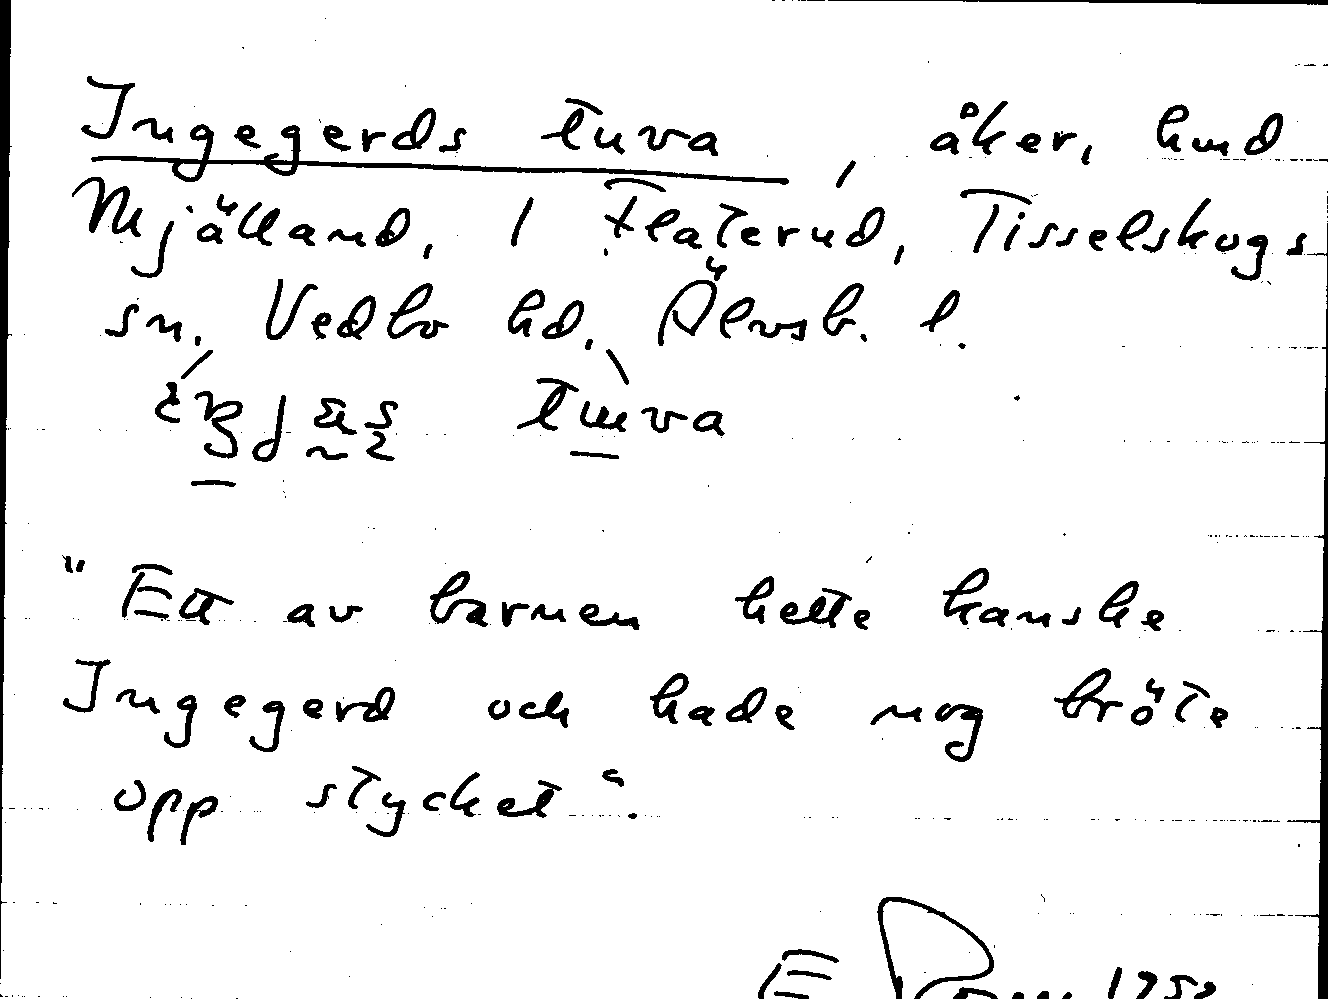 Ingegerds tuva, åker, hmd
Mjälland, 1 Flaterud, Tisselskogs
sn. Vedbo hd. Älvsb. l.
"Ett av barnen hette kanske
Ingegerd och hade nog bröte
opp stycket".
E